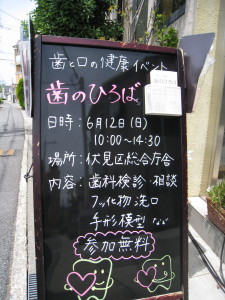 歯と口の健康イベント
歯のひろば
日時：6月12日(日)
10:00〜14:30
場所：伏見区総合庁舎
内容：歯科検診・相談
フッ化物洗口
手形模型 など
参加無料